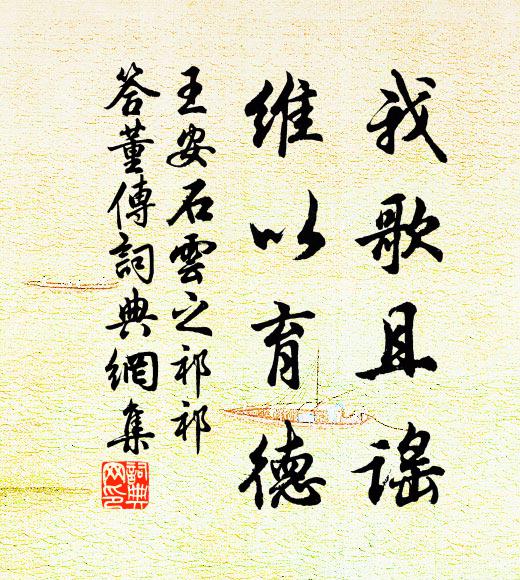 我歌且謠
維以育德
王安石雲之祁祁
答董傳詞典網集
詞典
网印